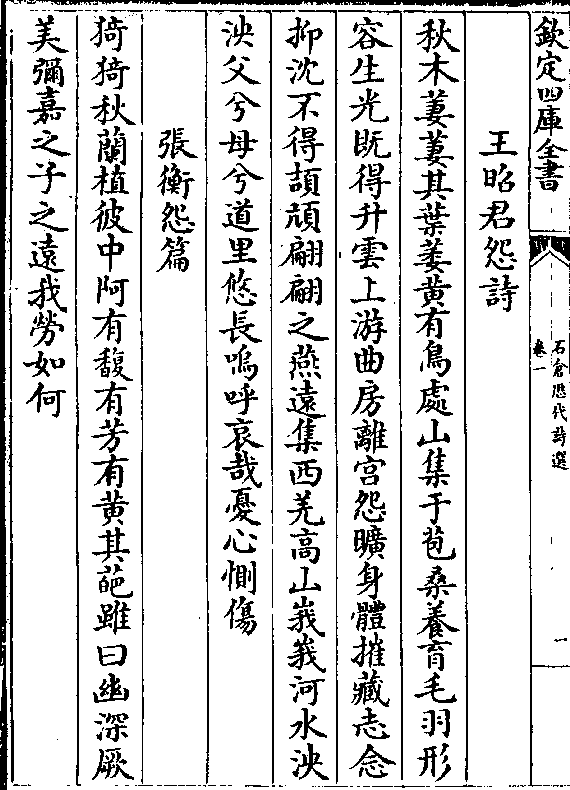 欽定四庫全書
石倉歷代詩選
卷一
一
王昭君怨詩
秋木萋萋其葉萎黄有鳥處山集于苞桑養育毛羽形
容生光既得升雲上游曲房離宫怨曠身體摧藏志念
抑沈不得頡頏翩翩之燕遠集西羌高山峩峩河水泱
泱父兮母兮道里悠長嗚呼哀哉憂心惻傷
張衡怨篇
猗猗秋蘭植彼中阿有馥有芳有黄其葩雖曰幽深厥
美彌嘉之子之遠我勞如何